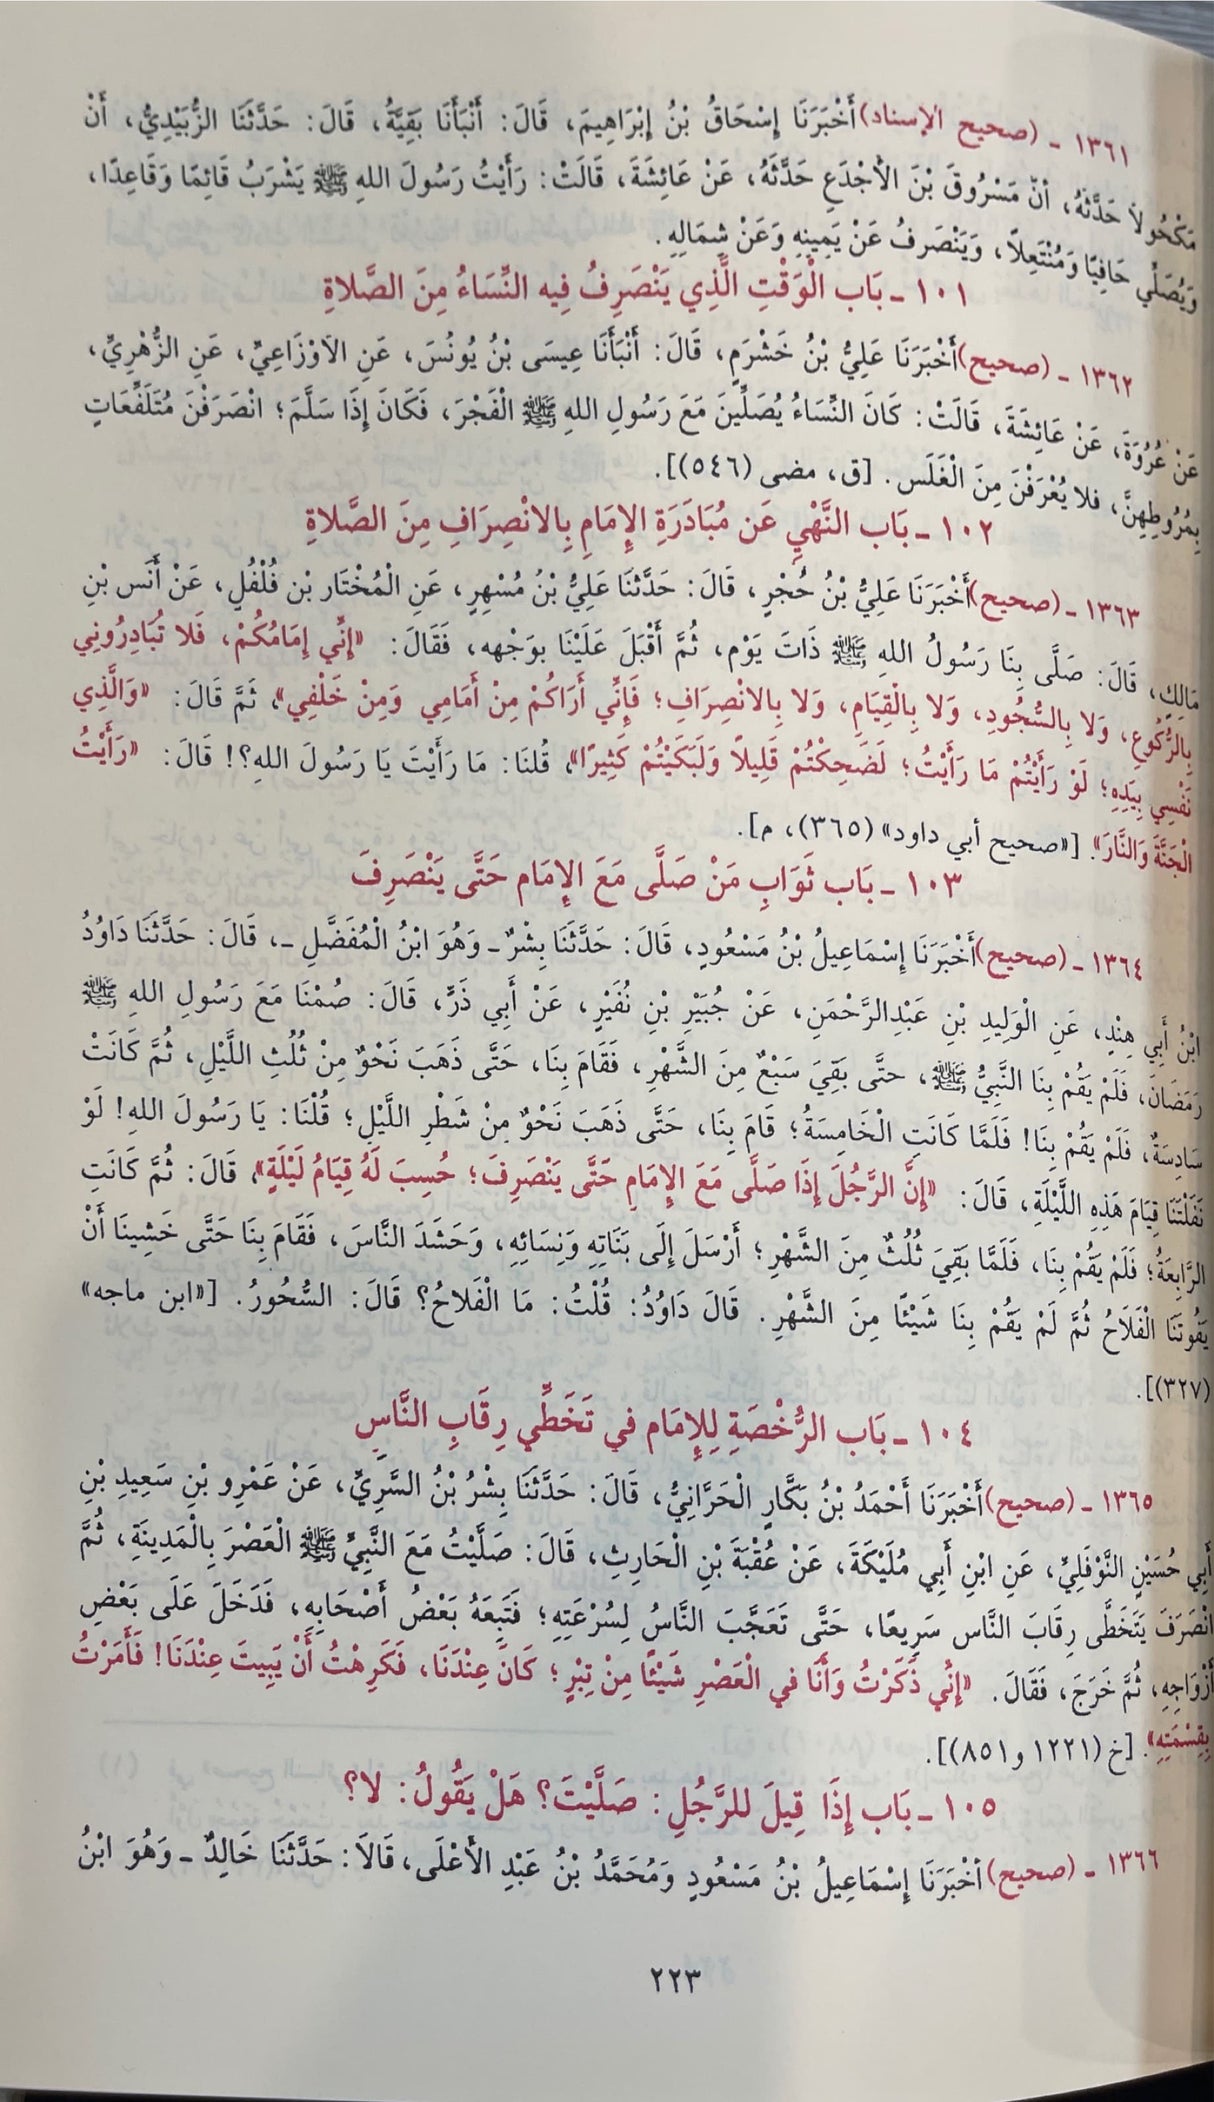 ١٣٦١ ـ (صحيح الإسناد) أَخْبَرَنَا إِسْحَاقُ بْنُ إِبْرَاهِيمَ، قَالَ: أَنْبَأَنَا بَقِيَّةُ، قَالَ: حَدَّثَنَا الزُّبَيْدِيُّ، أَنْ
مَكْحُولاً حَدَّثَهُ، أَنَّ مَسْرُوقَ بْنَ الأَجْدَعِ حَدَّثَهُ، عَنْ عَائِشَةَ، قَالَتْ: رَأَيْتُ رَسُولَ اللهِ ﷺ يَشْرَبُ قَائِمًا وَقَاعِدًا،
وَيُصَلِّي حَافِيًا وَمُنْتَعِلاً، وَيَنْصَرِفُ عَنْ يَمِينِهِ وَعَنْ شِمَالِهِ.
١٠١ ـ بَاب الْوَقْتِ الَّذِي يَنْصَرِفُ فِيه النِّسَاءُ مِنَ الصَّلاةِ
١٣٦٢ ـ (صحيح) أَخْبَرَنَا عَلِيُّ بْنُ خَشْرَمٍ، قَالَ: أَنْبَأَنَا عِيسَى بْنُ يُونُسَ، عَنِ الأَوْزَاعِيِّ، عَنِ الزُّهْرِيِّ،
عَنْ عُرْوَةَ، عَنْ عَائِشَةَ، قَالَتْ: كَانَ النِّسَاءُ يُصَلِّينَ مَعَ رَسُولِ اللهِ ﷺ الْفَجْرَ، فَكَانَ إِذَا سَلَّمَ؛ انْصَرَفْنَ مُتَلَفِّعَاتٍ
بِمُرُوطِهِنَّ، فلا يُعْرَفْنَ مِنَ الْغَلَس. [ق، مضى (٥٤٦)].
١٠٢ ـ بَاب النَّهْيِ عَن مُبَادَرَةِ الإِمَامِ بِالانْصِرَافِ مِنَ الصَّلاةِ
١٣٦٣ ـ (صحيح) أَخْبَرَنَا عَلِيُّ بْنُ حُجْرٍ، قَالَ: حَدَّثَنَا عَلِيُّ بْنُ مُسْهِرٍ، عَنِ الْمُخْتَارِ بْنِ فُلْفُلٍ، عَنْ أَنَسِ بْنِ
مَالِكٍ، قَالَ: صَلَّى بِنَا رَسُولُ اللهِ ﷺ ذَاتَ يَوْمٍ، ثُمَّ أَقْبَلَ عَلَيْنَا بوَجْهه، فَقَالَ: «إِنِّي إِمَامُكُمْ، فَلا تُبَادِرُونِي
بِالرُّكُوعِ، وَلا بِالسُّجُودِ، وَلا بِالْقِيَامِ، وَلا بِالانْصِرَافِ؛ فَإِنِّي أَرَاكُمْ مِنْ أَمَامِي وَمِنْ خَلْفِي»، ثمَّ قَالَ: «وَالَّذِي
نَفْسِي بِيَدِهِ؛ لَوْ رَأَيْتُمْ مَا رَأَيْتُ؛ لَضَحِكْتُمْ قَلِيلاً وَلَبَكَيْتُمْ كَثِيرًا»، قُلنَا: مَا رَأَيْتَ يَا رَسُولَ اللهِ؟! قَالَ: «رَأَيْتُ
الْجَنَّةَ وَالنَّارَ». [«صحيح أبي داود» (٣٦٥)، م].
١٠٣ ـ بَاب ثَوَابِ مَنْ صَلَّى مَعَ الإِمَام حَتَّى يَنْصَرِفَ
١٣٦٤ ـ (صحيح) أَخْبَرَنَا إِسْمَاعِيلُ بْنُ مَسْعُودٍ، قَالَ: حَدَّثَنَا بِشْرٌ ـ وَهُوَ ابْنُ الْمُفَضَّلِ ـ، قَالَ: حَدَّثَنَا دَاوُدُ
ابْنُ أَبِي هِنْدٍ، عَنِ الْوَلِيدِ بْنِ عَبْدِالرَّحْمَنِ، عَنْ جُبَيْرِ بْنِ نُفَيْرٍ، عَنْ أَبِي ذَرٍّ، قَالَ: صُمْنَا مَعَ رَسُولِ اللهِ ﷺ
رَمَضَانَ، فَلَمْ يَقُمْ بِنَا النَّبِيُّ ﷺ، حتَّى بَقِيَ سَبْعٌ مِنَ الشَّهْرِ، فَقَامَ بِنَا، حَتَّى ذَهَبَ نَحْوٌ مِنْ ثُلُثِ اللَّيْلِ، ثُمَّ كَانَتْ
سَادِسَةٌ، فَلَمْ يَقُمْ بِنَا! فَلَمَّا كَانَتِ الْخَامِسَةُ؛ قَامَ بِنَا، حَتَّى ذَهَبَ نَحْوٌ مِنْ شَطْرِ اللَّيْلِ؛ قُلْنَا: يَا رَسُولَ اللهِ! لَوْ
نَفَلْتَنَا قِيَامَ هَذِهِ اللَّيْلَةِ، قَالَ: «إِنَّ الرَّجُلَ إِذَا صَلَّى مَعَ الإِمَامِ حَتَّى يَنْصَرِفَ؛ حُسِبَ لَهُ قِيَامُ لَيْلَةٍ»، قَالَ: ثُمَّ كَانَتِ
الرَّابِعَةُ؛ فَلَمْ يَقُمْ بِنَا، فَلَمَّا بَقِيَ ثُلُثٌ مِنَ الشَّهْرِ؛ أَرْسَلَ إِلَى بَنَاتِهِ وَنِسَائِهِ، وَحَشَدَ النَّاسَ، فَقَامَ بِنَا حَتَّى خَشِينَا أَنْ
يَفُوتَنَا الْفَلَاحُ ثُمَّ لَمْ يَقُمْ بِنَا شَيْئًا مِنَ الشَّهْرِ. قَالَ دَاوُدُ: قُلْتُ: مَا الْفَلاحُ؟ قَالَ: السُّحُورُ. [«ابن ماجه»
(٣٢٧)].
١٠٤ ـ بَاب الرُّخْصَةِ لِلإِمَام في تَخَطِّي رِقَابِ النَّاسِ
١٣٦٥ ـ (صحيح) أَخْبَرَنَا أَحْمَدُ بْنُ بَكَّارٍ الْحَرَّانِيُّ، قَالَ: حَدَّثَنَا بِشْرُ بْنُ السَّرِيِّ، عَنْ عَمْرِو بْنِ سَعِيدِ بْنِ
أَبِي حُسَيْنٍ النَّوْفَلِيِّ، عَنِ ابْنِ أَبِي مُلَيْكَةَ، عَنْ عُقْبَةَ بْنِ الْحَارِثِ، قَالَ: صَلَّيْتُ مَعَ النَّبِيِّ ﷺ الْعَصْرَ بِالْمَدِينَةِ، ثُمَّ
انْصَرَفَ يَتَخَطَّى رِقَابَ النَّاس سَرِيعًا، حَتَّى تَعَجَّبَ النَّاسُ لِسُرْعَتِهِ؛ فَتَبِعَهُ بَعْضُ أَصْحَابِه، فَدَخَلَ عَلَى بَعْضِ
أَزْوَاجِهِ، ثُمَّ خَرَجَ، فَقَالَ. «إِنِّي ذَكَرْتُ وَأَنَا في الْعَصْرِ شَيْئًا مِنْ تِبْرٍ؛ كَانَ عِنْدَنَا، فَكَرِهْتُ أَنْ يَبِيتَ عِنْدَنَا! فَأَمَرْتُ
بِقِسْمَتِهِ». [خ (١٢٢١ و٨٥١)].
١٠٥ ـ بَاب إِذَا قِيلَ للرَّجُلِ: صَلَّيْتَ؟ هَلْ يَقُولُ: لا؟
١٣٦٦ ـ (صحيح) أَخْبَرَنَا إِسْمَاعِيلُ بْنُ مَسْعُودٍ وَمُحَمَّدُ بْنُ عَبْدِ الأَعْلَى، قَالَا: حَدَّثَنَا خَالِدٌ ـ وَهُوَ ابْنُ
٢٢٣